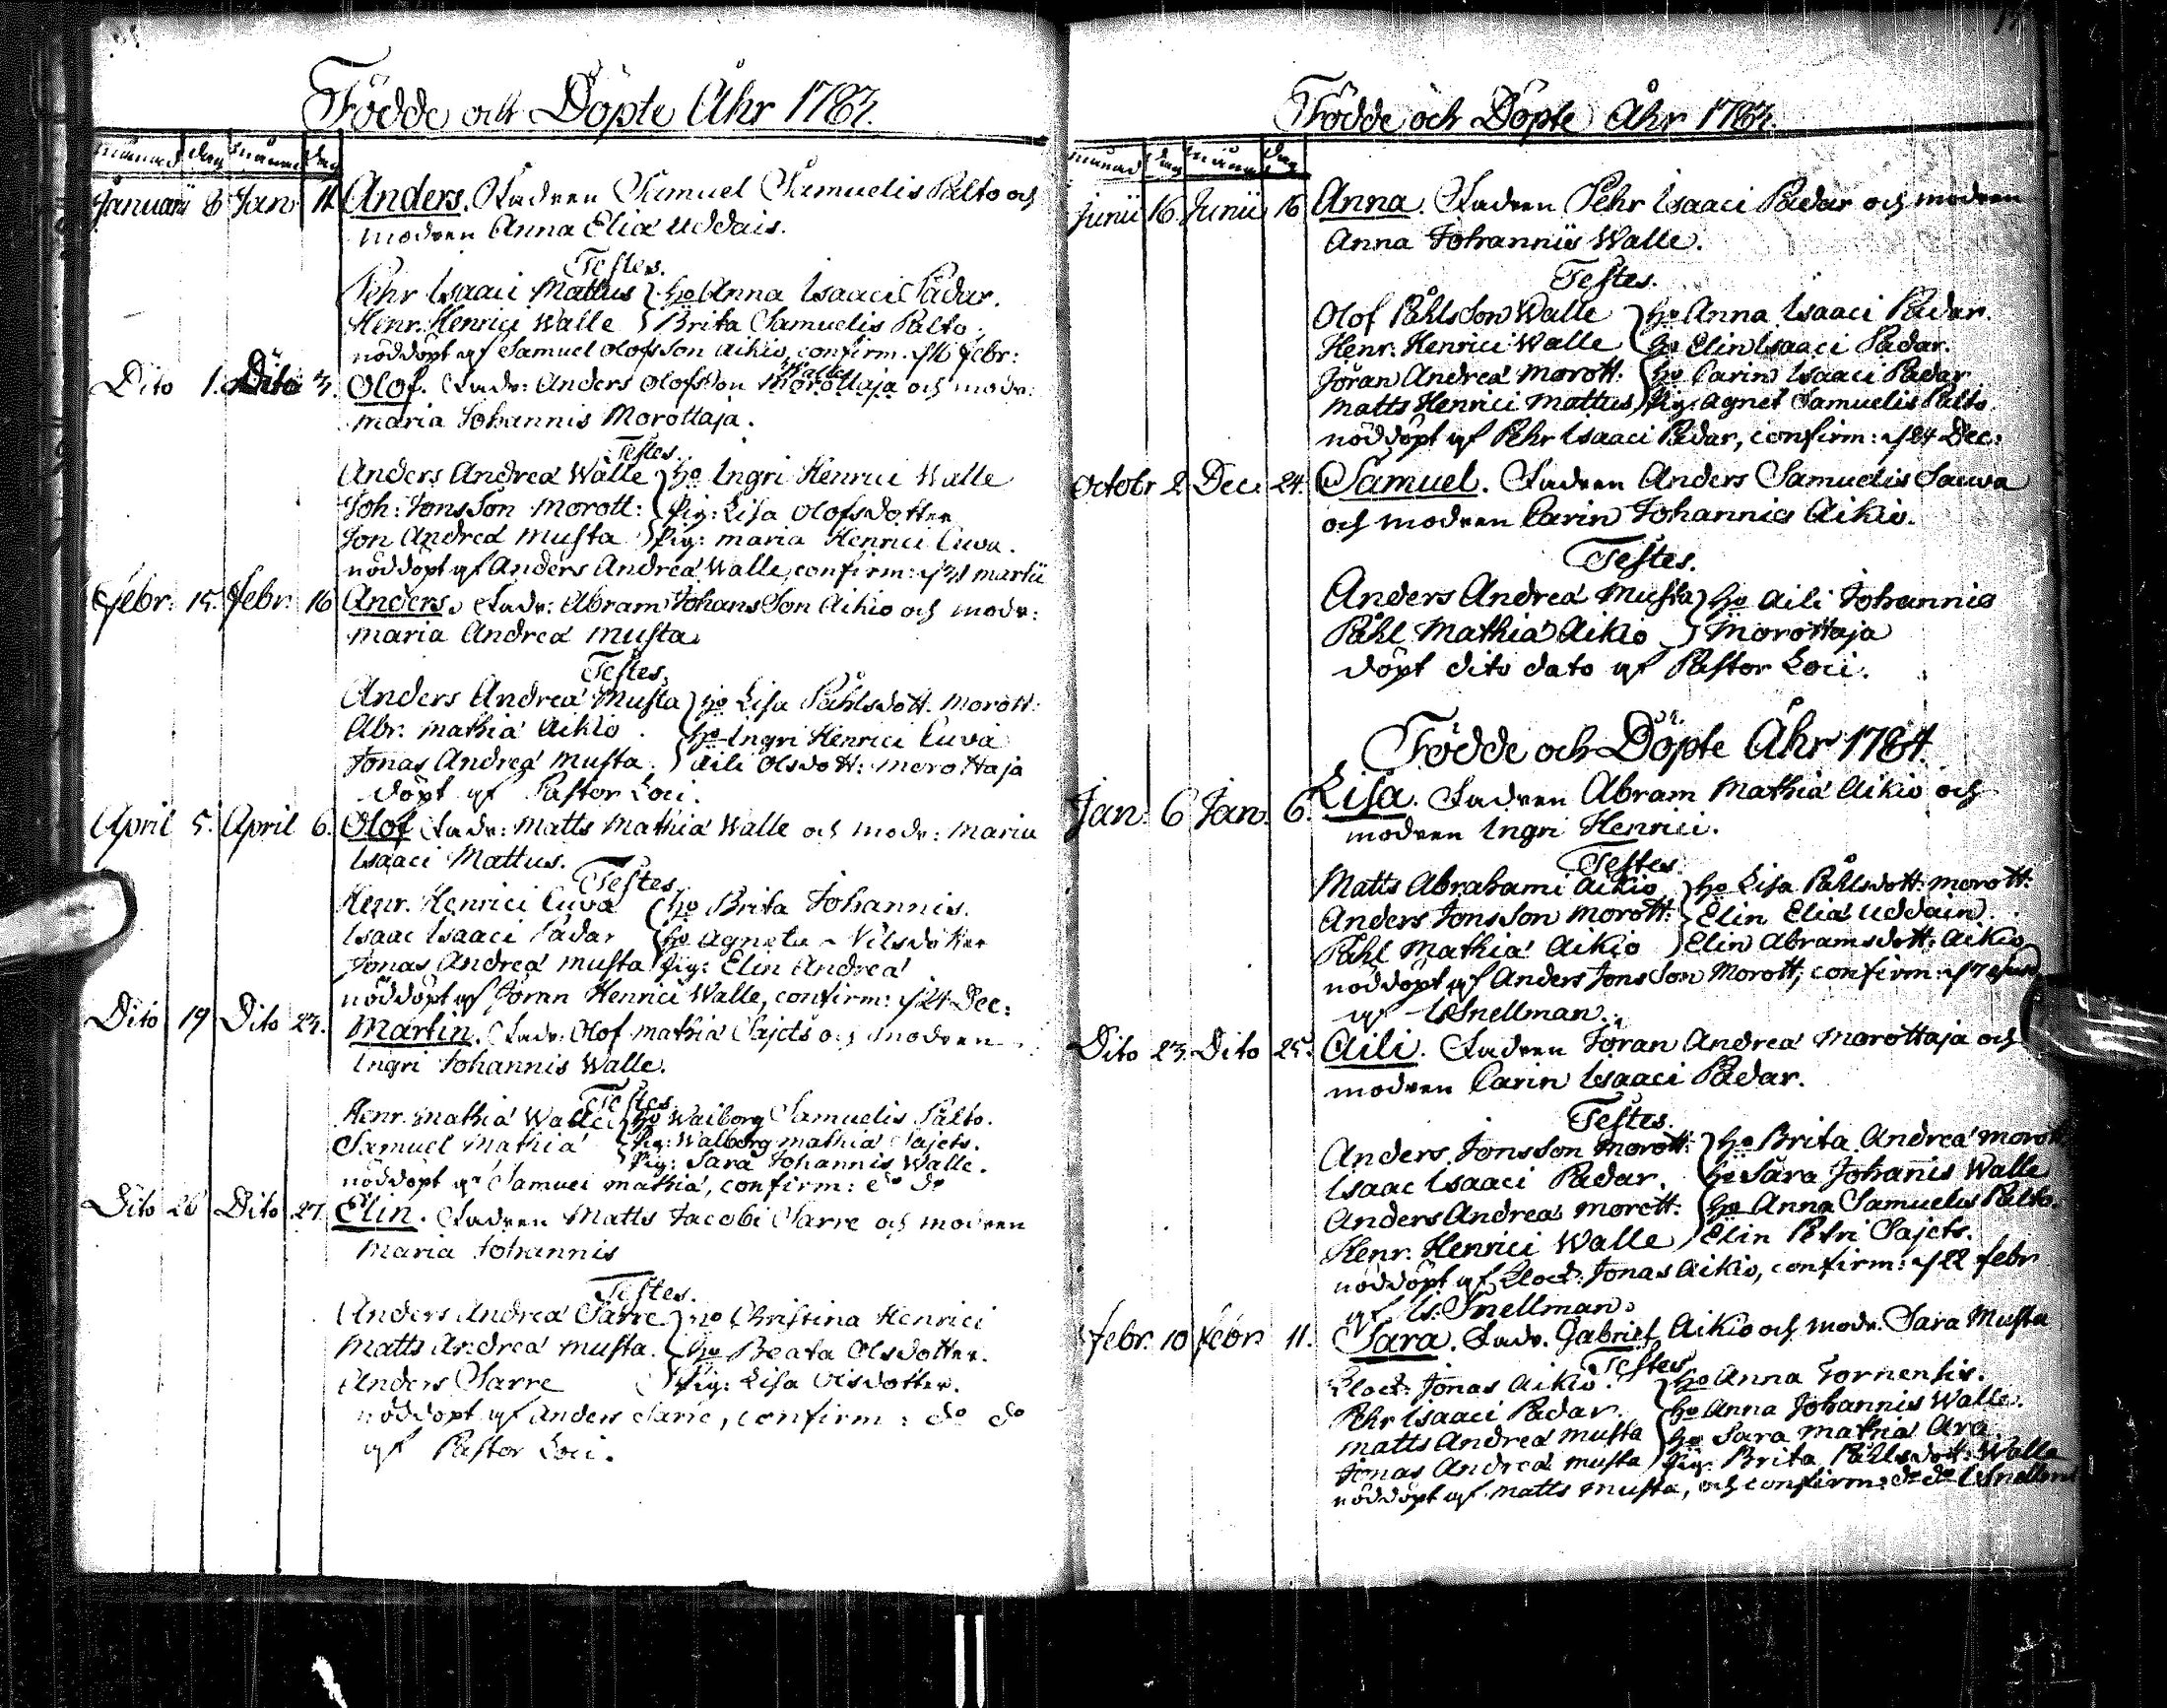 Födde och Döpte Åhr 1783.
månad dag månad dag
Januarii 8 Jan 11. Anders. Fadren Samuel Samuelis Palto och
modren Anna Eliæ Uddais.
Testes.
Pehr Isaaci Mattus } ho Anna Isaaci Padar.
Henr. Henrici Walle } Brita Samuelis Palto.
nöddöpt af Samuel Olofsson Aikio, confirm. d 16 febr:
Dito 1. Dito 3. Olof. Fadr: Anders Olofsson Morottaja Walle och modr:
maria Johannis Morottaja.
Testes.
Anders Andreæ Walle } ho Ingri Henrici Walle
Joh: Jonsson Morott: } Pig: Lisa Olofsdotter
Jon Andreæ Musta } Pig: maria Henrici Cuva.
nöddöpt af Anders Andreæ Walle, confirm: d 31 martii
Febr. 15. Febr. 16 Anders. Fadr: Abram Johansson Aikio och modr:
maria Andreæ Musta
Testes.
Anders Andreæ Musta } ho Lisa Påhlsdott. Morott:
Abr. Mathiæ Aikio. } ho Ingri Henrici Cuva
Jonas Andreæ Musta. } Aili Olsdott: Morottaja
döpt af Pastor Loci.
April 5. April 6. Olof Fadr: Matts Mathiæ Walle och modr: Maria
Isaaci Mattus.
Testes
Henr. Henrici Cuva } ho Brita Johannis.
Isaac Isaaci Padar } ho Agneta Nilsdotter
Jonas Andreæ Musta } Pig: Elin Andreæ
nöddöpt af Jöran Henrici Walle, confirm: d 24 Dec:
Dito 19 Dito 23. Martin. Fadr: Olof Mathiæ Sajets och modren
Ingri Johannis Walle.
Testes
Henr. Mathiæ Walle } ho Walborg Samuelis Palto.
Samuel Mathiæ } Pig: Walborg Mathiæ Sajets.
Pig: Sara Johannis Walle.
nöddöpt af Samuel Mathiæ, confirm: do do
Dito 26 Dito 27. Elin. Fadren Matts Jacobi Sarre och modren
Maria Johannis
Testes.
Anders Andreæ Sarre } ho Christina Henrici
Matts Andreæ Musta. } ho Beata Olsdotter.
Anders Sarre } Pig: Lisa Olsdotter.
nöddöpt af Anders Sarre, confirm: do do
af Pastor Loci.
Födde och Döpte Åhr 1783.
månad dag månad dag
Junii 16 Junii 16 Anna. Fadren Pehr Isaaci Padar och modren
Anna Johannis Walle.
Testes.
Olof Påhlsson Walle } ho Anna Isaaci Padar.
Henr. Henrici Walle } ho Elin Isaaci Padar.
Jöran Andreæ Morott: } ho Carin Isaaci Padar
Matts Henrici Mattus } Pig: Agnet Samuelis Palto
nöddöpt af Pehr Isaaci Padar, confirm: d 24 Dec:
Octobr 2 Dec. 24. Samuel. Fadren Anders Samuelis Sauva
och modren Carin Johannis Aikio.
Testes.
Anders Andreæ Musta } ho Aili Johannis
Påhl Mathiæ Aikio } Morottaja
döpt dito dato af Pastor Loci.
Födde och Döpte Åhr 1784.
Jan. 6 Jan. 6. Lisa. Fadren Abram Mathiæ Aikio och
modren Ingri Henrici.
Testes.
Matts Abrahami Aikio } ho Lisa Påhlsdott: Morott:
Anders Jonsson Morott: } Elin Eliæ Uddain.
Påhl Mathiæ Aikio } Elin Abramsdott: Aikio
nöddöpt af Anders Jonsson Morott, confirm: d 7
af Snellman.
Dito 23. Dito 25. Aili. Fadren Jöran Andreæ Morottaja och
modren Carin Isaaci Padar.
Testes.
Anders Jonsson Morott: } ho Brita Andreæ Morott
Isaac Isaaci Padar. } ho Sara Johanis Walle
Anders Andreæ Morott: } ho Anna Samuelis Palto.
Henr. Henrici Walle } Elin Petri Sajets.
nöddöpt af Klock: Jonas Aikio, confirm: d 22 febr
af Is. Snellman.
Febr. 10 Febr. 11. Sara. Fadr. Gabriel Aikio och modr. Sara Musta
Testes
Klock: Jonas Aikio. } ho Anna Tornensis.
Pehr Isaaci Padar. } ho Anna Johannis Walle.
Matts Andreæ Musta } ho Sara Mathiæ Ara
Jonas Andreæ Musta } Pig: Brita Påhlsdott: Walle
nöddöpt af Matts Musta, och confirm: do do Snellman